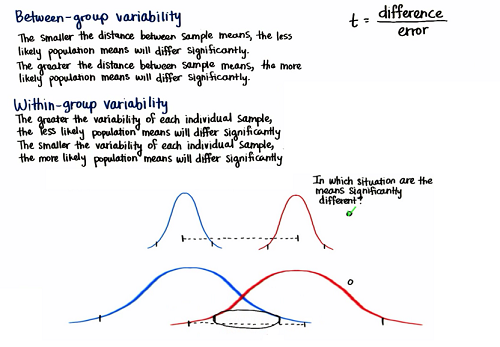 Between-group variability
The smaller the distance between sample means, the less
likely population means will differ significantly.
The greater the distance between sample means, the more
likely population means will differ significantly.
t = difference
error
Within-group variability
The greater the variability of each individual sample,
the less likely population means will differ significantly
The smaller the variability of each individual sample,
the more likely population means will differ significantly
In which situation are the
means significantly
different?